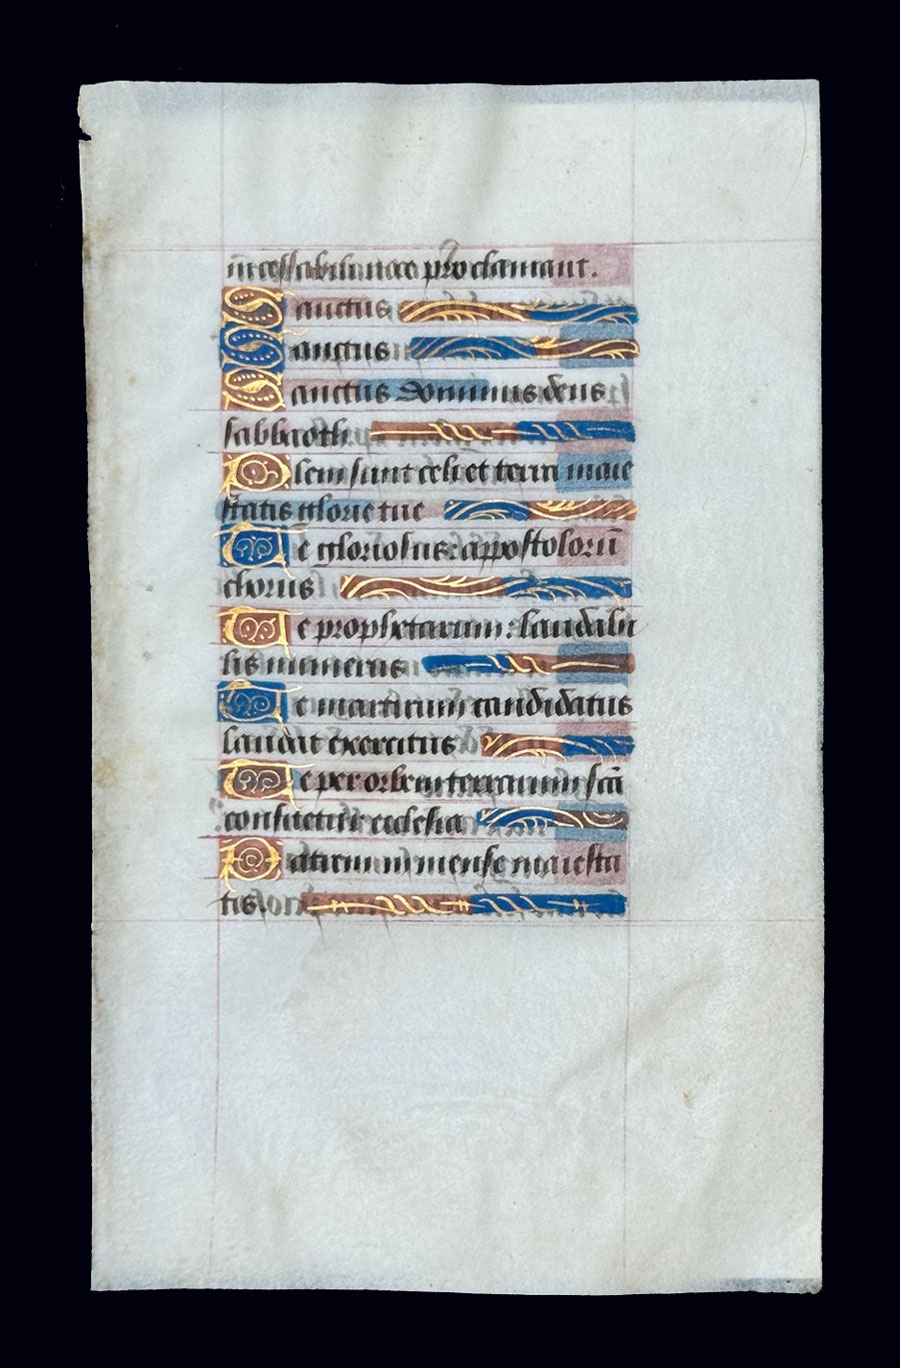 incessabili uoce proclamant.
Sanctus
Sanctus
Sanctus Dominus deus
sabbaoth
Plem sunt celi et terra maie
statis glorie tue
Te gloriosus: appostolorū
chorus
Te prophetarum: laudabi
lis numerus
Te martirum candidatus
laudat exercitus
Te per orbem terrarum scā
confitetur ecclesia
Patrem immense maiesta
tis.